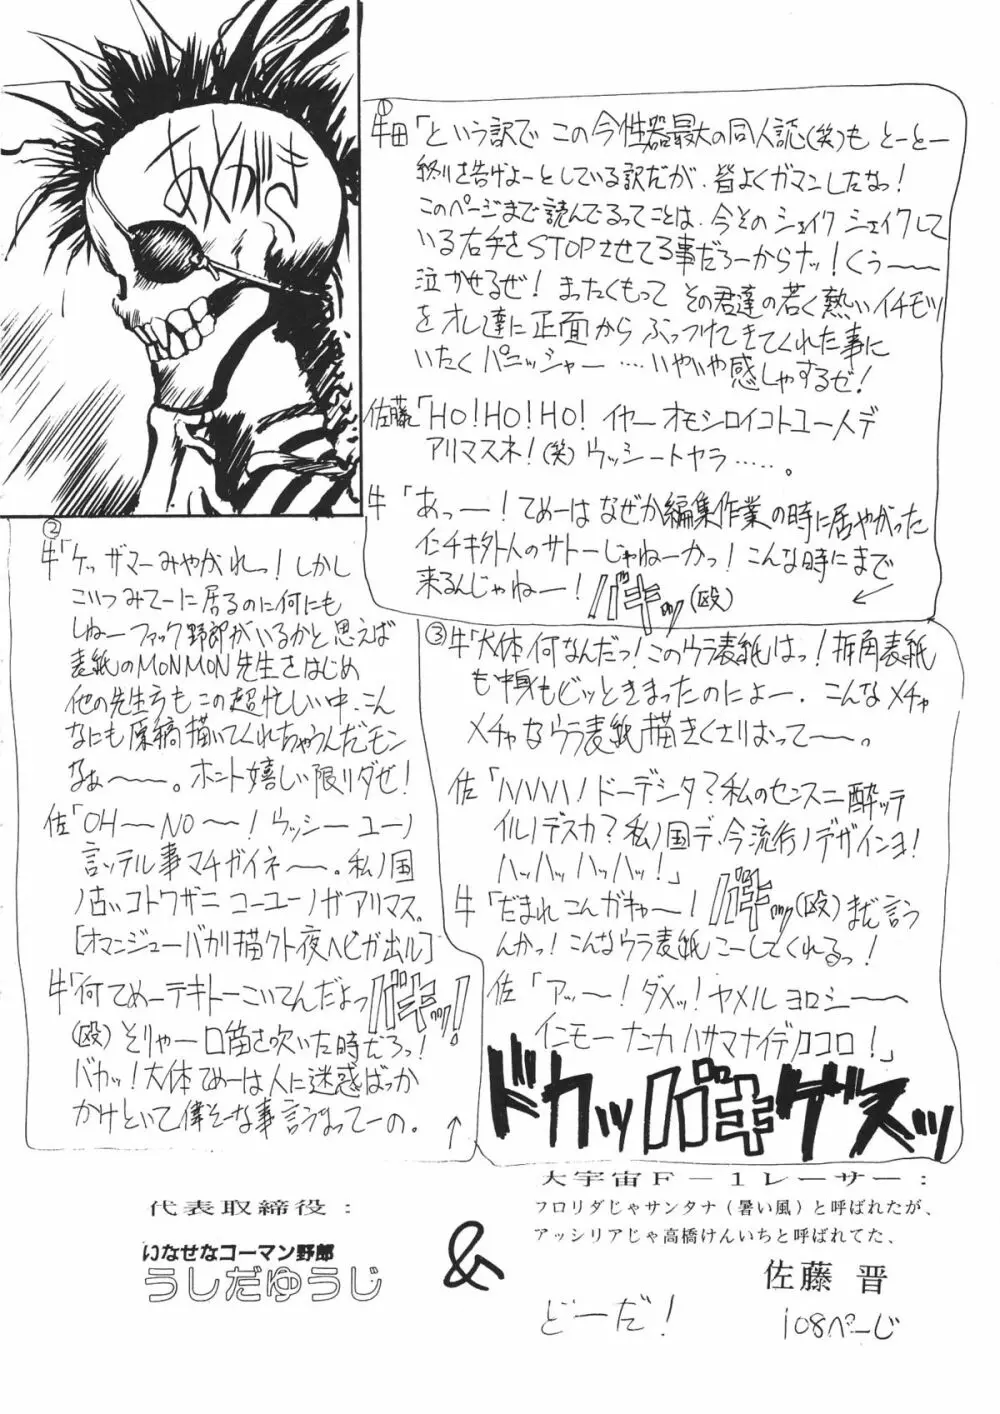 あとがき
①
牛田「という訳で この今性器最大の同人誌(笑)も とーとー
終りを告げよーとしている訳だが、皆よくガマンしたなっ!
このページまで読んでるってことは、今そのシェイク シェイクして
いる右手をSTOPさせてる事だろーからナッ!くぅ〜〜
泣かせるぜ! まったくもって その君達の若く熱いイチモツ
をオレ達に正面から ぶっつけてきてくれた事に
いたく パニッシャー ‥‥いやいや感しゃするぜ!
佐藤「HO!HO!HO! イヤーオモシロイコトユー人デ
アリマスネ!(笑) ウッシートヤラ‥‥‥。
牛「あっ〜〜!てめーは なぜか編集作業の時に居やがった
インチキ外人のサトーじゃねーかっ!こんな時にまで
来るんじゃねー!バキッ(殴)
②
牛「ケッ ザマーみやがれっ!しかし
こいつみてーに居るのに何にも
しねーファック野郎がいるかと思えば
表紙のMONMON先生をはじめ
他の先生方もこの超忙しい中、こん
なにも原稿描いてくれちゃうんだモン
なぁ〜〜。ホント嬉しい限リダぜ!
佐「OH〜NO〜!ウッシーユーノ
言ッテル事マチガイネ〜。私ノ国
ノ古いコトワザニ コーユーノガアリマス。
[オマンジューバカリ描クト夜ヘビガ出ル]
牛「何てめーテキトーこいてんだよっ バキッ!
(殴)そりゃー口笛を吹いた時だろっ!
バカッ!大体てめーは人に迷惑ばっか
かけといて偉そーな事言うなってーの。
③
牛「大体何なんだっ!このウラ表紙はっ!折角表紙
も中身もビッときまったのによー、こんなメチャ
メチャなウラ表紙描きくさりおって〜〜。
佐「ハハハハ!ドーデシタ?私のセンスニ酔ッテ
イルノデスカ?私ノ国デ、今流行ノデザインヨ!
ハッハッハッハッ!」
牛「だまれこんガキゃ〜!バキッ(殴)まだ言う
んかっ!こんなウラ表紙こーしてくれるっ!
佐「アッ〜!ダメッ!ヤメル ヨロシ〜〜
インモーナンカ ハサマナイデノココロ!」
ドカッ バキ ゲスッ
代表取締役:
いなせなコーマン野郎
うしだゆうじ
&
大宇宙F−1レーサー:
フロリダじゃサンタナ(暑い風)と呼ばれたが、
アッシリアじゃ高橋けんいちと呼ばれてた、
佐藤 晋
どーだ!
108ぺーじ